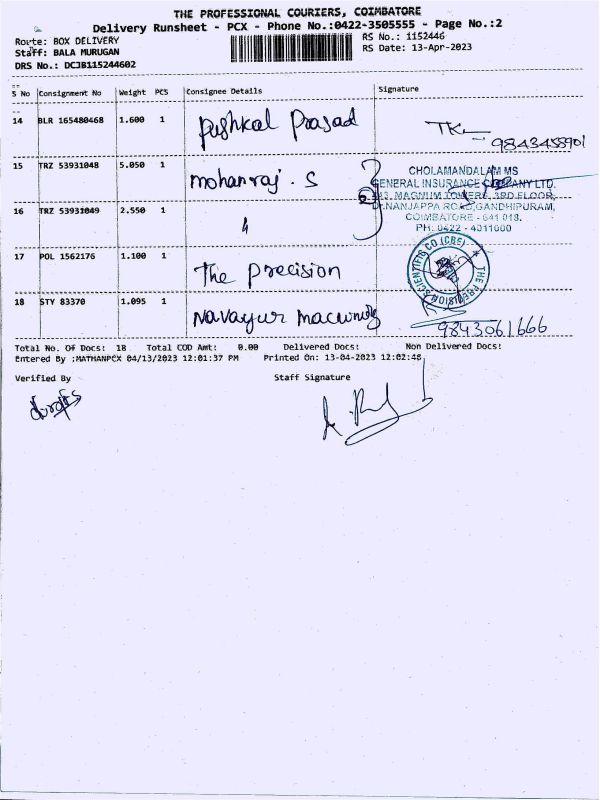 THE PROFESSIONAL COURIERS, COIMBATORE
Delivery Runsheet - PCX - Phone No.:0422-3505555 - Page No.:2
Route: BOX DELIVERY
RS No.: 1152446
Staff: BALA MURUGAN
RS Date: 13-Apr-2023
DRS No.: DCJB115244602
S No Consignment No Weight PCS Consignee Details Signature
14 BLR 165480468 1.600 1 Pushkal Prasad
9843458901
15 TRZ 53931048 5.050 1 Mohanraj . S
CHOLAMANDALAM MS
GENERAL INSURANCE COMPANY LTD.
MAGNUM TOWERS, 3RD FLOOR,
Dr.NANJAPPA ROAD, GANDHIPURAM,
COIMBATORE - 641 018.
PH: 0422 - 4011000
16 TRZ 53931049 2.550 1
17 POL 1562176 1.100 1 The Precision
THE PRECISION SCIENTIFIC CO (CBE)
18 STY 83370 1.095 1
9843061666
Total No. Of Docs: 18 Total COD Amt: 0.00 Delivered Docs: Non Delivered Docs:
Entered By :MATHANPCX 04/13/2023 12:01:37 PM Printed On: 13-04-2023 12:02:48
Verified By Staff Signature